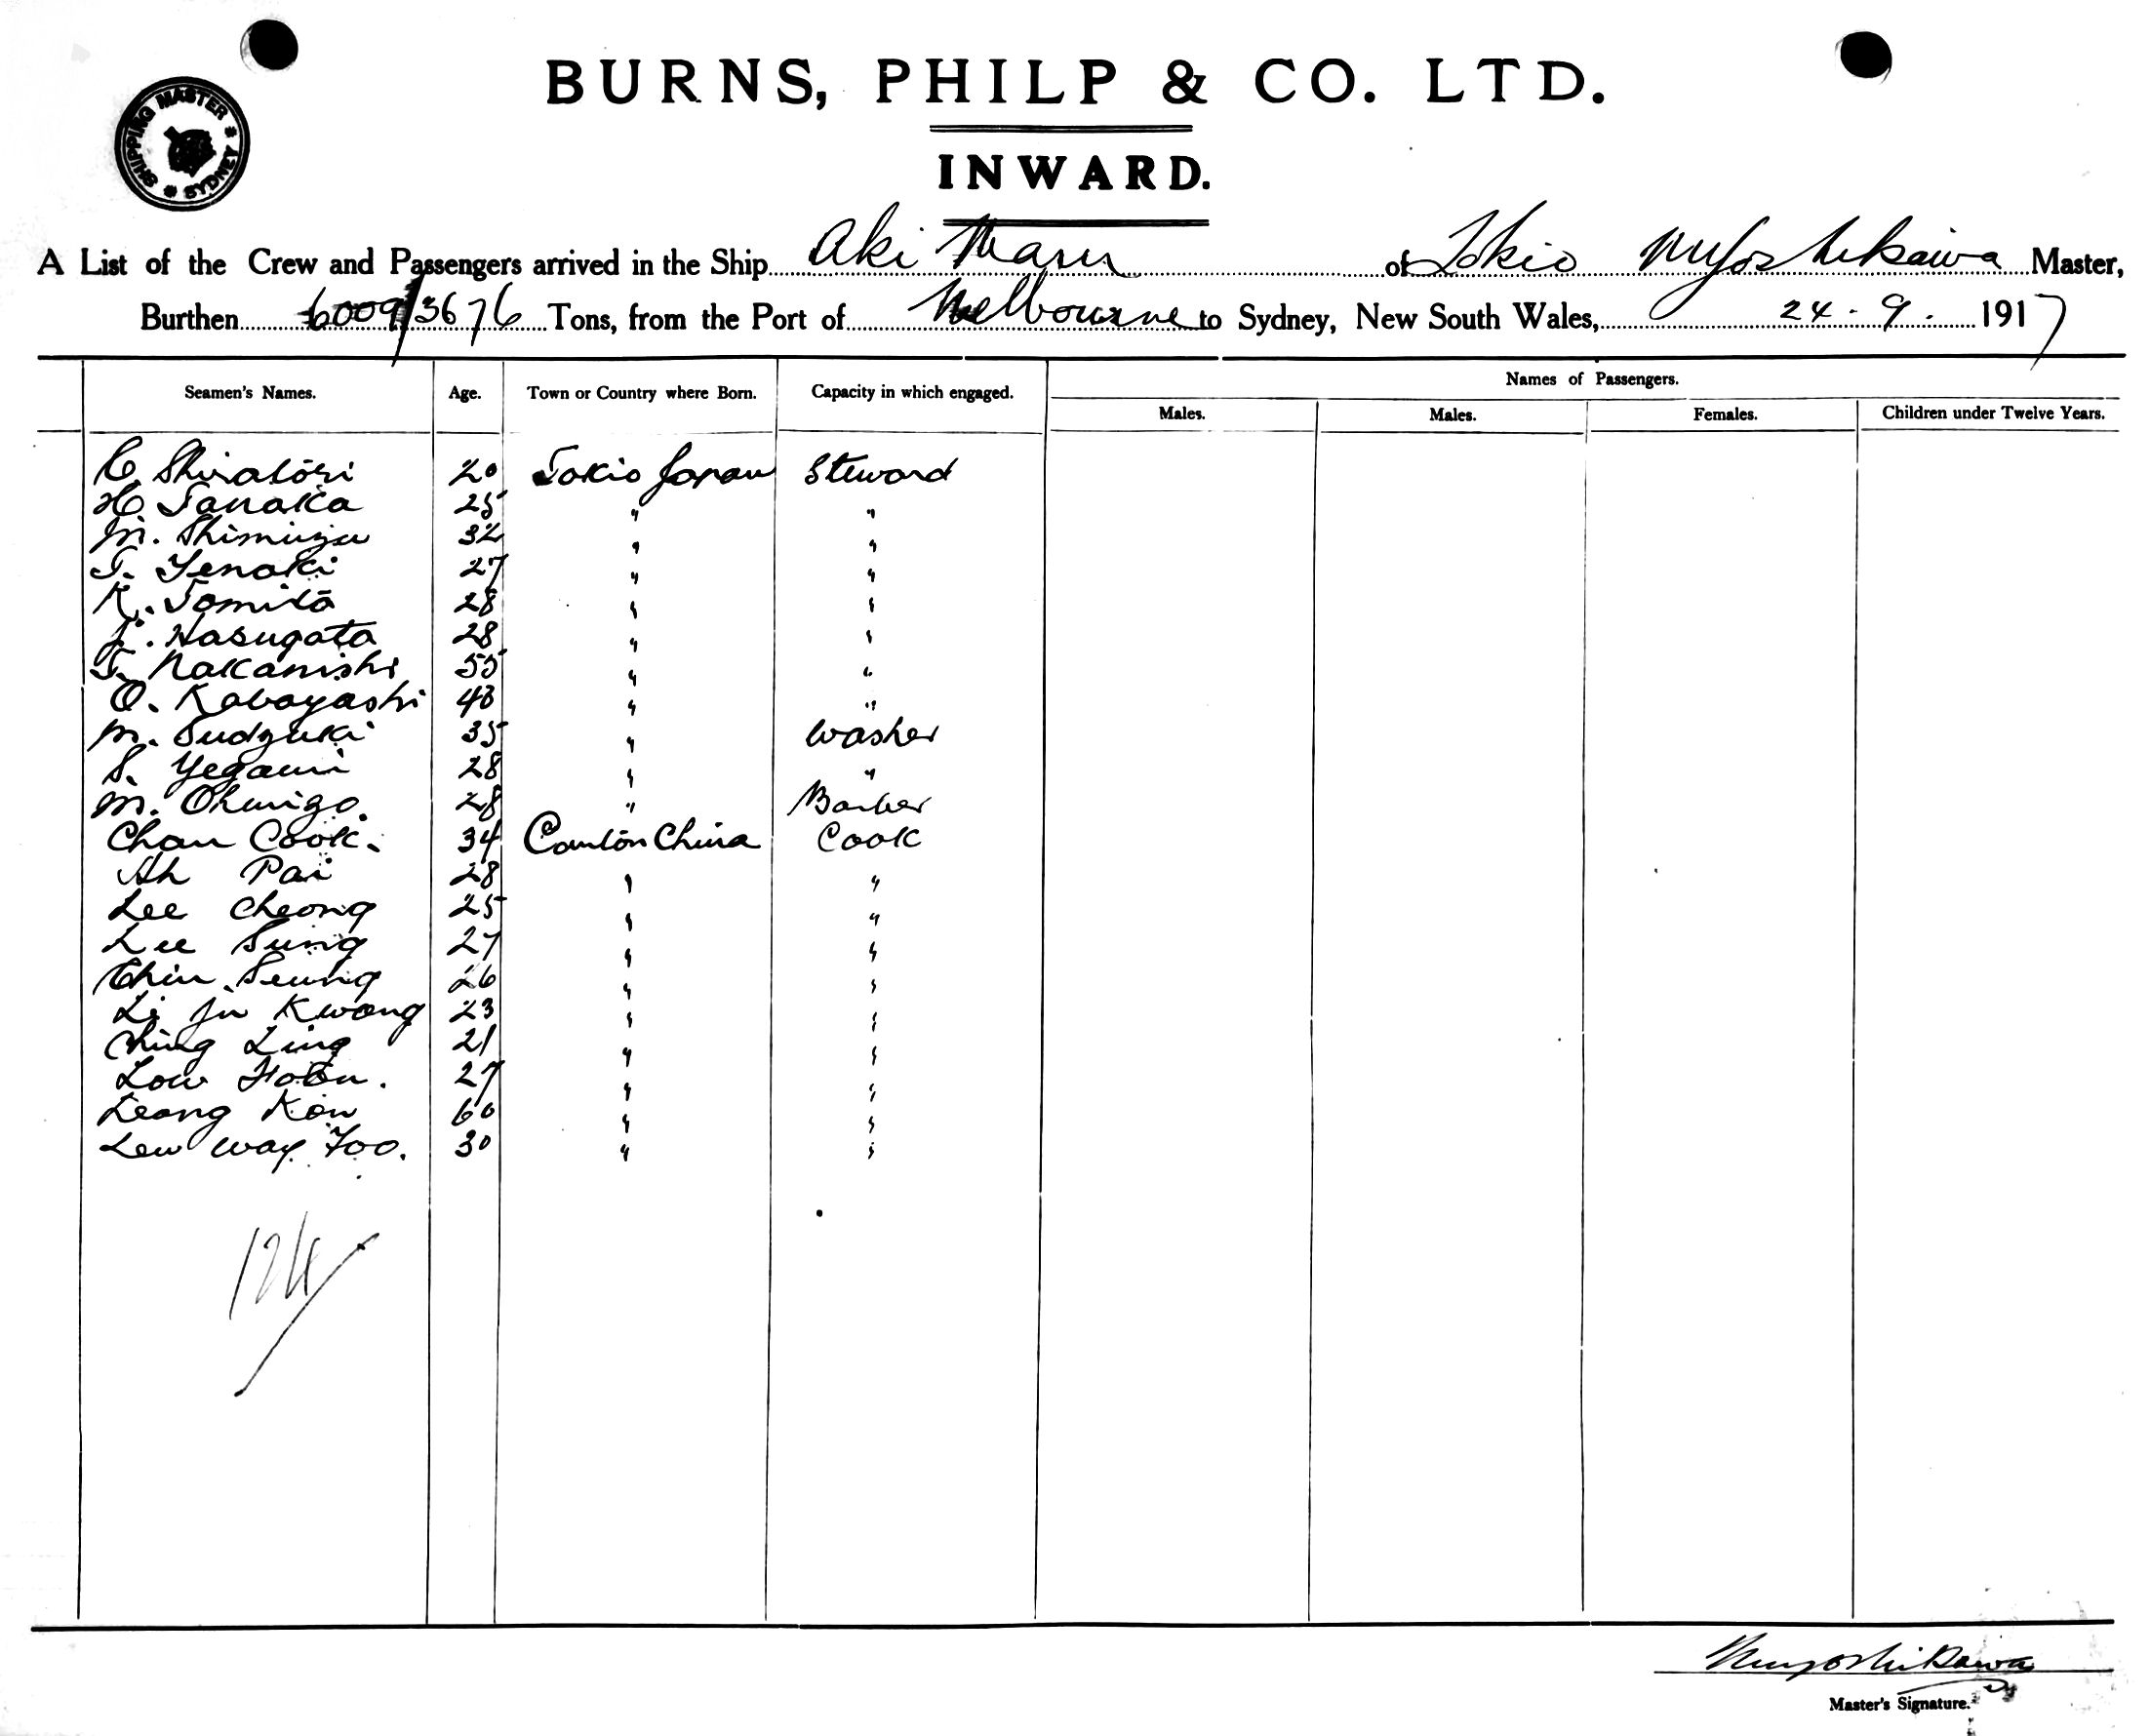 BURNS, PHILP & CO. LTD.
SHIPPING MASTER
SYDNEY
INWARD.
A List of the Crew and Passengers arrived in the Ship Aki Maru of Tokio M Yoshikawa Master,
Burthen 6009/3676 Tons, from the Port of Melbourne to Sydney, New South Wales, 24 . 9 . 1917
Names of Passengers.
Seamen's Names. Age. Town or Country where Born. Capacity in which engaged. Males. Males. Females. Children under Twelve Years.
C. Shiratori 20 Tokio Japan Steward
H. Tanaka 25 " "
M. Shimizu 32 " "
T. Yenoki 27 " "
K. Tomita 28 " "
Hasugata 28 " "
T. Nakanishi 55 " "
O. Kobayashi 48 " "
M. Sudzuki 35 " Washer
S. Yegami 28 " "
M. 28 " Barber
Chan Cook. 34 Canton China Cook
Ah Pai 28 " "
Lee Cheong 25 " "
Lee Sung 27 " "
Chin Seung 26 " "
Li Ju Kwong 23 " "
Ching Ling 21 " "
Low 27 " "
Leong Kon 60 " "
Lew Way Foo. 30 " "
124
M Yoshikawa
Master's Signature.